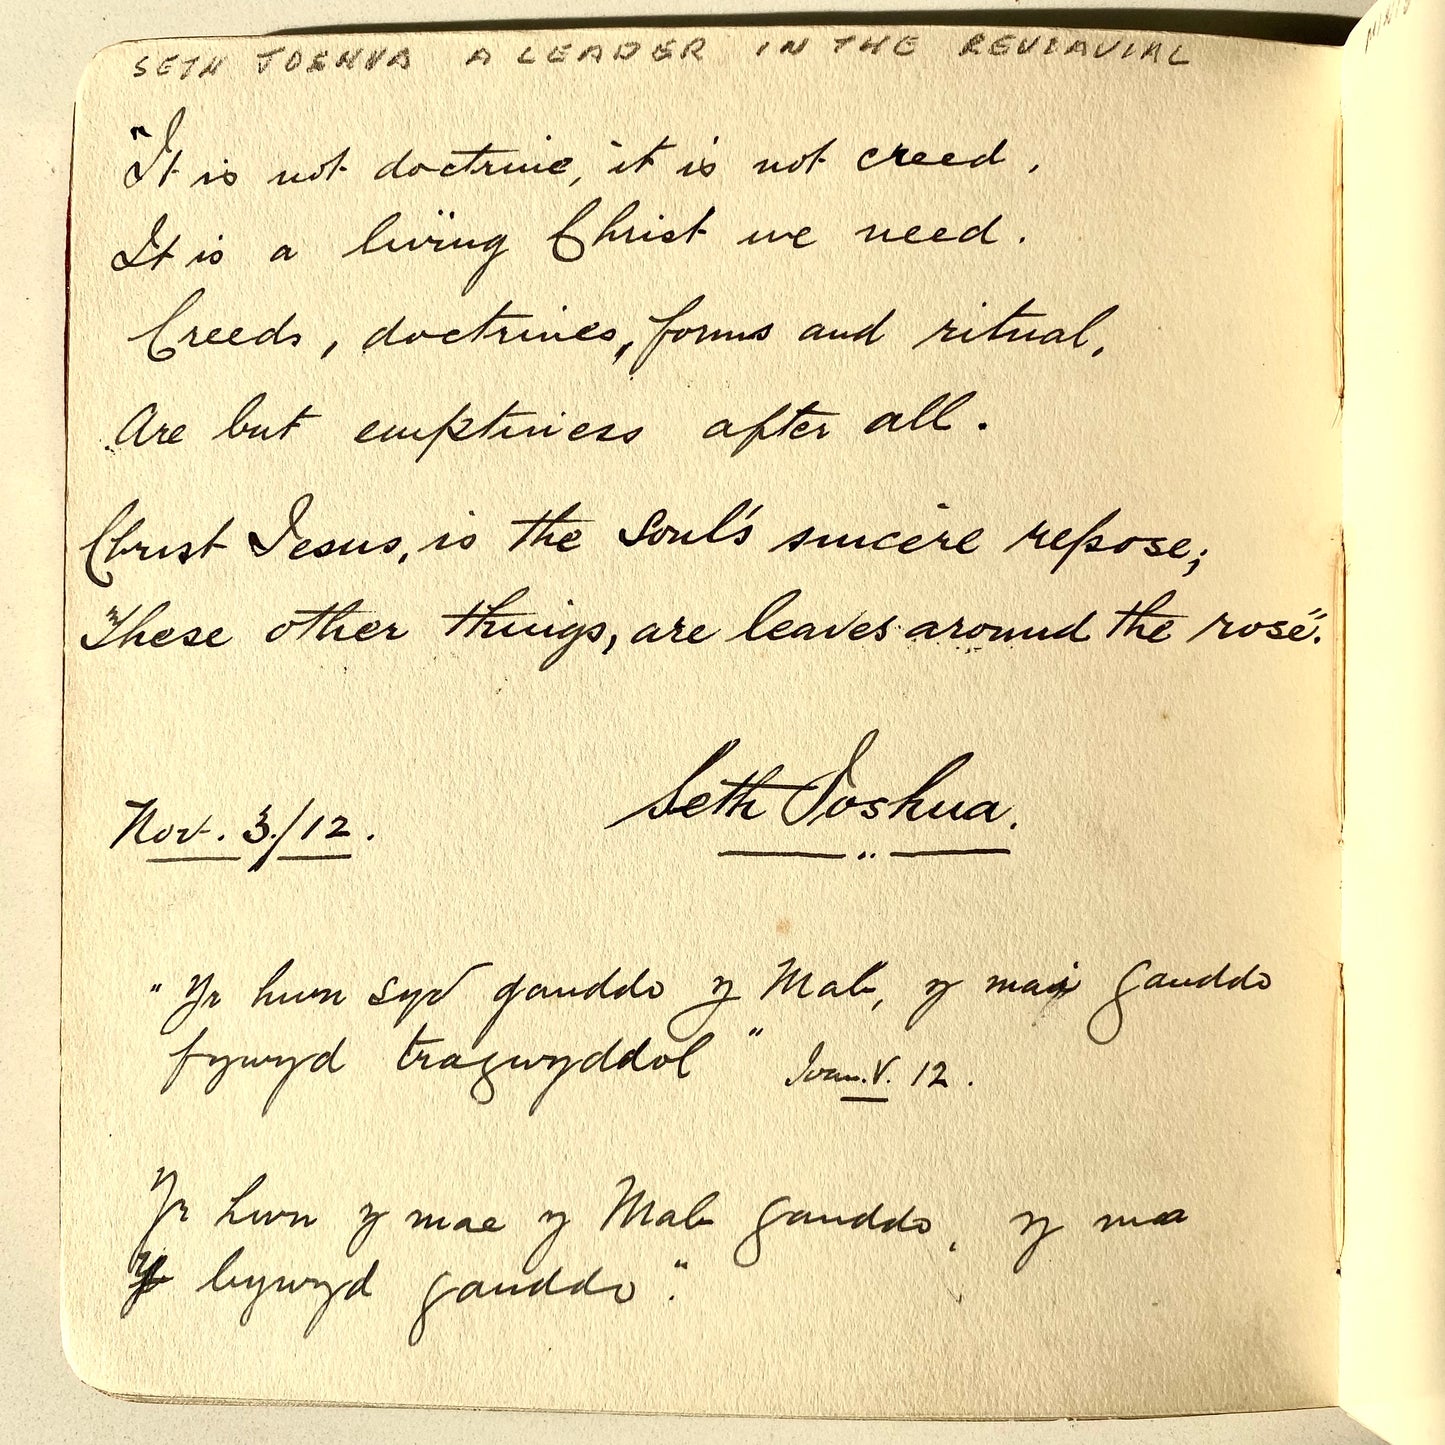 SETH JOSHUA A LEADER IN THE REVIAVIAL
"It is not doctrine, it is not creed,
It is a living Christ we need.
Creeds, doctrines, forms and ritual,
Are but emptiness after all.
Christ Jesus, is the Soul's sincere repose;
These other things, are leaves around the rose".
Seth Joshua.
Nov. 3./12.
"Yr hwn syd ganddo y Mab, y mae ganddo
fywyd tragwyddol" Ioan. V. 12.
Yr hwn y mae y Mab ganddo, y mae
y bywyd ganddo."